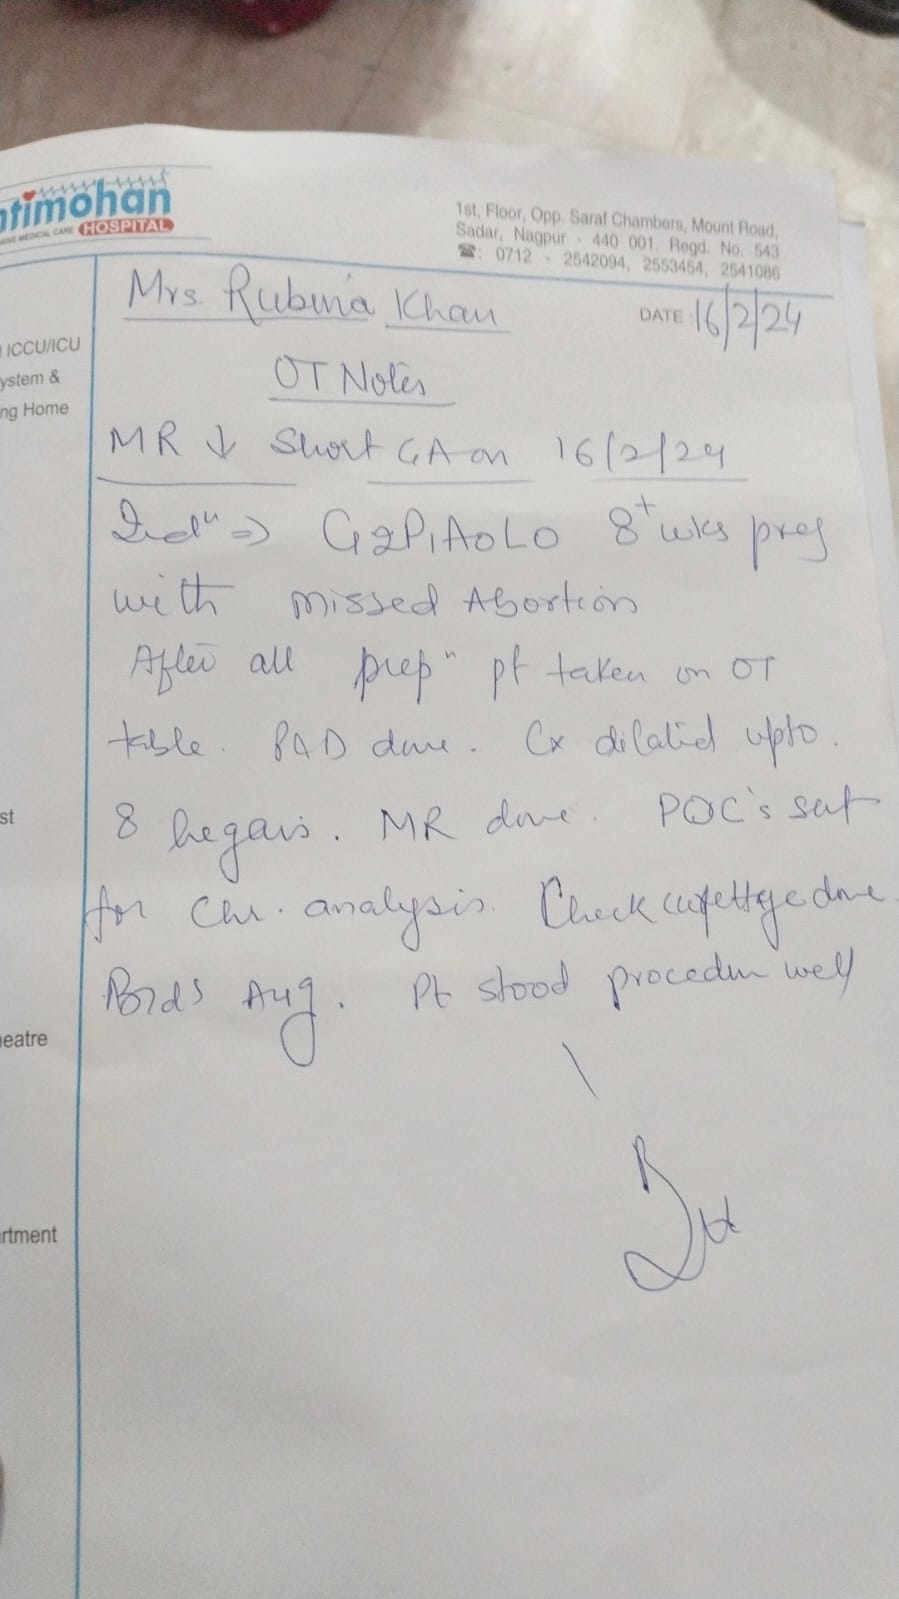 ntimohan
HOSPITAL
SIVE MEDICAL CARE
1st, Floor, Opp. Saraf Chambers, Mount Road,
Sadar, Nagpur - 440 001. Regd. No. 543
☎: 0712 - 2542094, 2553454, 2541086
Mrs. Rubina Khan
DATE: 16/2/24
ICCU/ICU
ystem &
ng Home
OT Notes
MR ↓ Short GA on 16/2/24
Indⁿ ⇒ G2P1A0L0 8⁺ wks preg
with missed Abortion
After all prepⁿ pt taken on OT
table. P&D done. Cx dilated upto.
st
8 hegars. MR done. POC's sent
for Chr. analysis. Check curettage done.
Bldg Avg. Pt stood procedure well
eatre
rtment